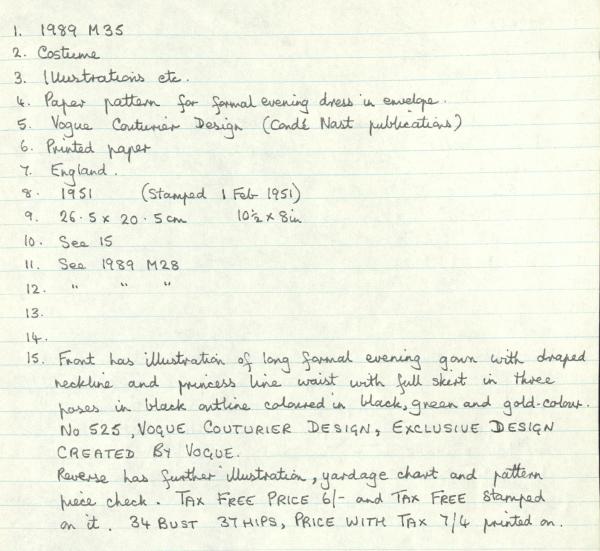 1. 1989 M35
2. Costume
3. Illustrations etc.
4. Paper pattern for formal evening dress in envelope.
5. Vogue Couturier Design (Condé Nast publications)
6. Printed paper
7. England.
8. 1951 (Stamped 1 Feb 1951)
9. 26.5 x 20.5cm 10½ x 8in
10. See 15
11. See 1989 M28
12. " " "
13.
14.
15. Front has illustration of long formal evening gown with draped
neckline and princess line waist with full skirt in three
poses in black outline coloured in black, green and gold-colour.
No 525, VOGUE COUTURIER DESIGN, EXCLUSIVE DESIGN
CREATED BY VOGUE.
Reverse has further illustration, yardage chart and pattern
piece check. TAX FREE PRICE 6/- and TAX FREE stamped
on it. 34 BUST 37 HIPS, PRICE WITH TAX 7/4 printed on.